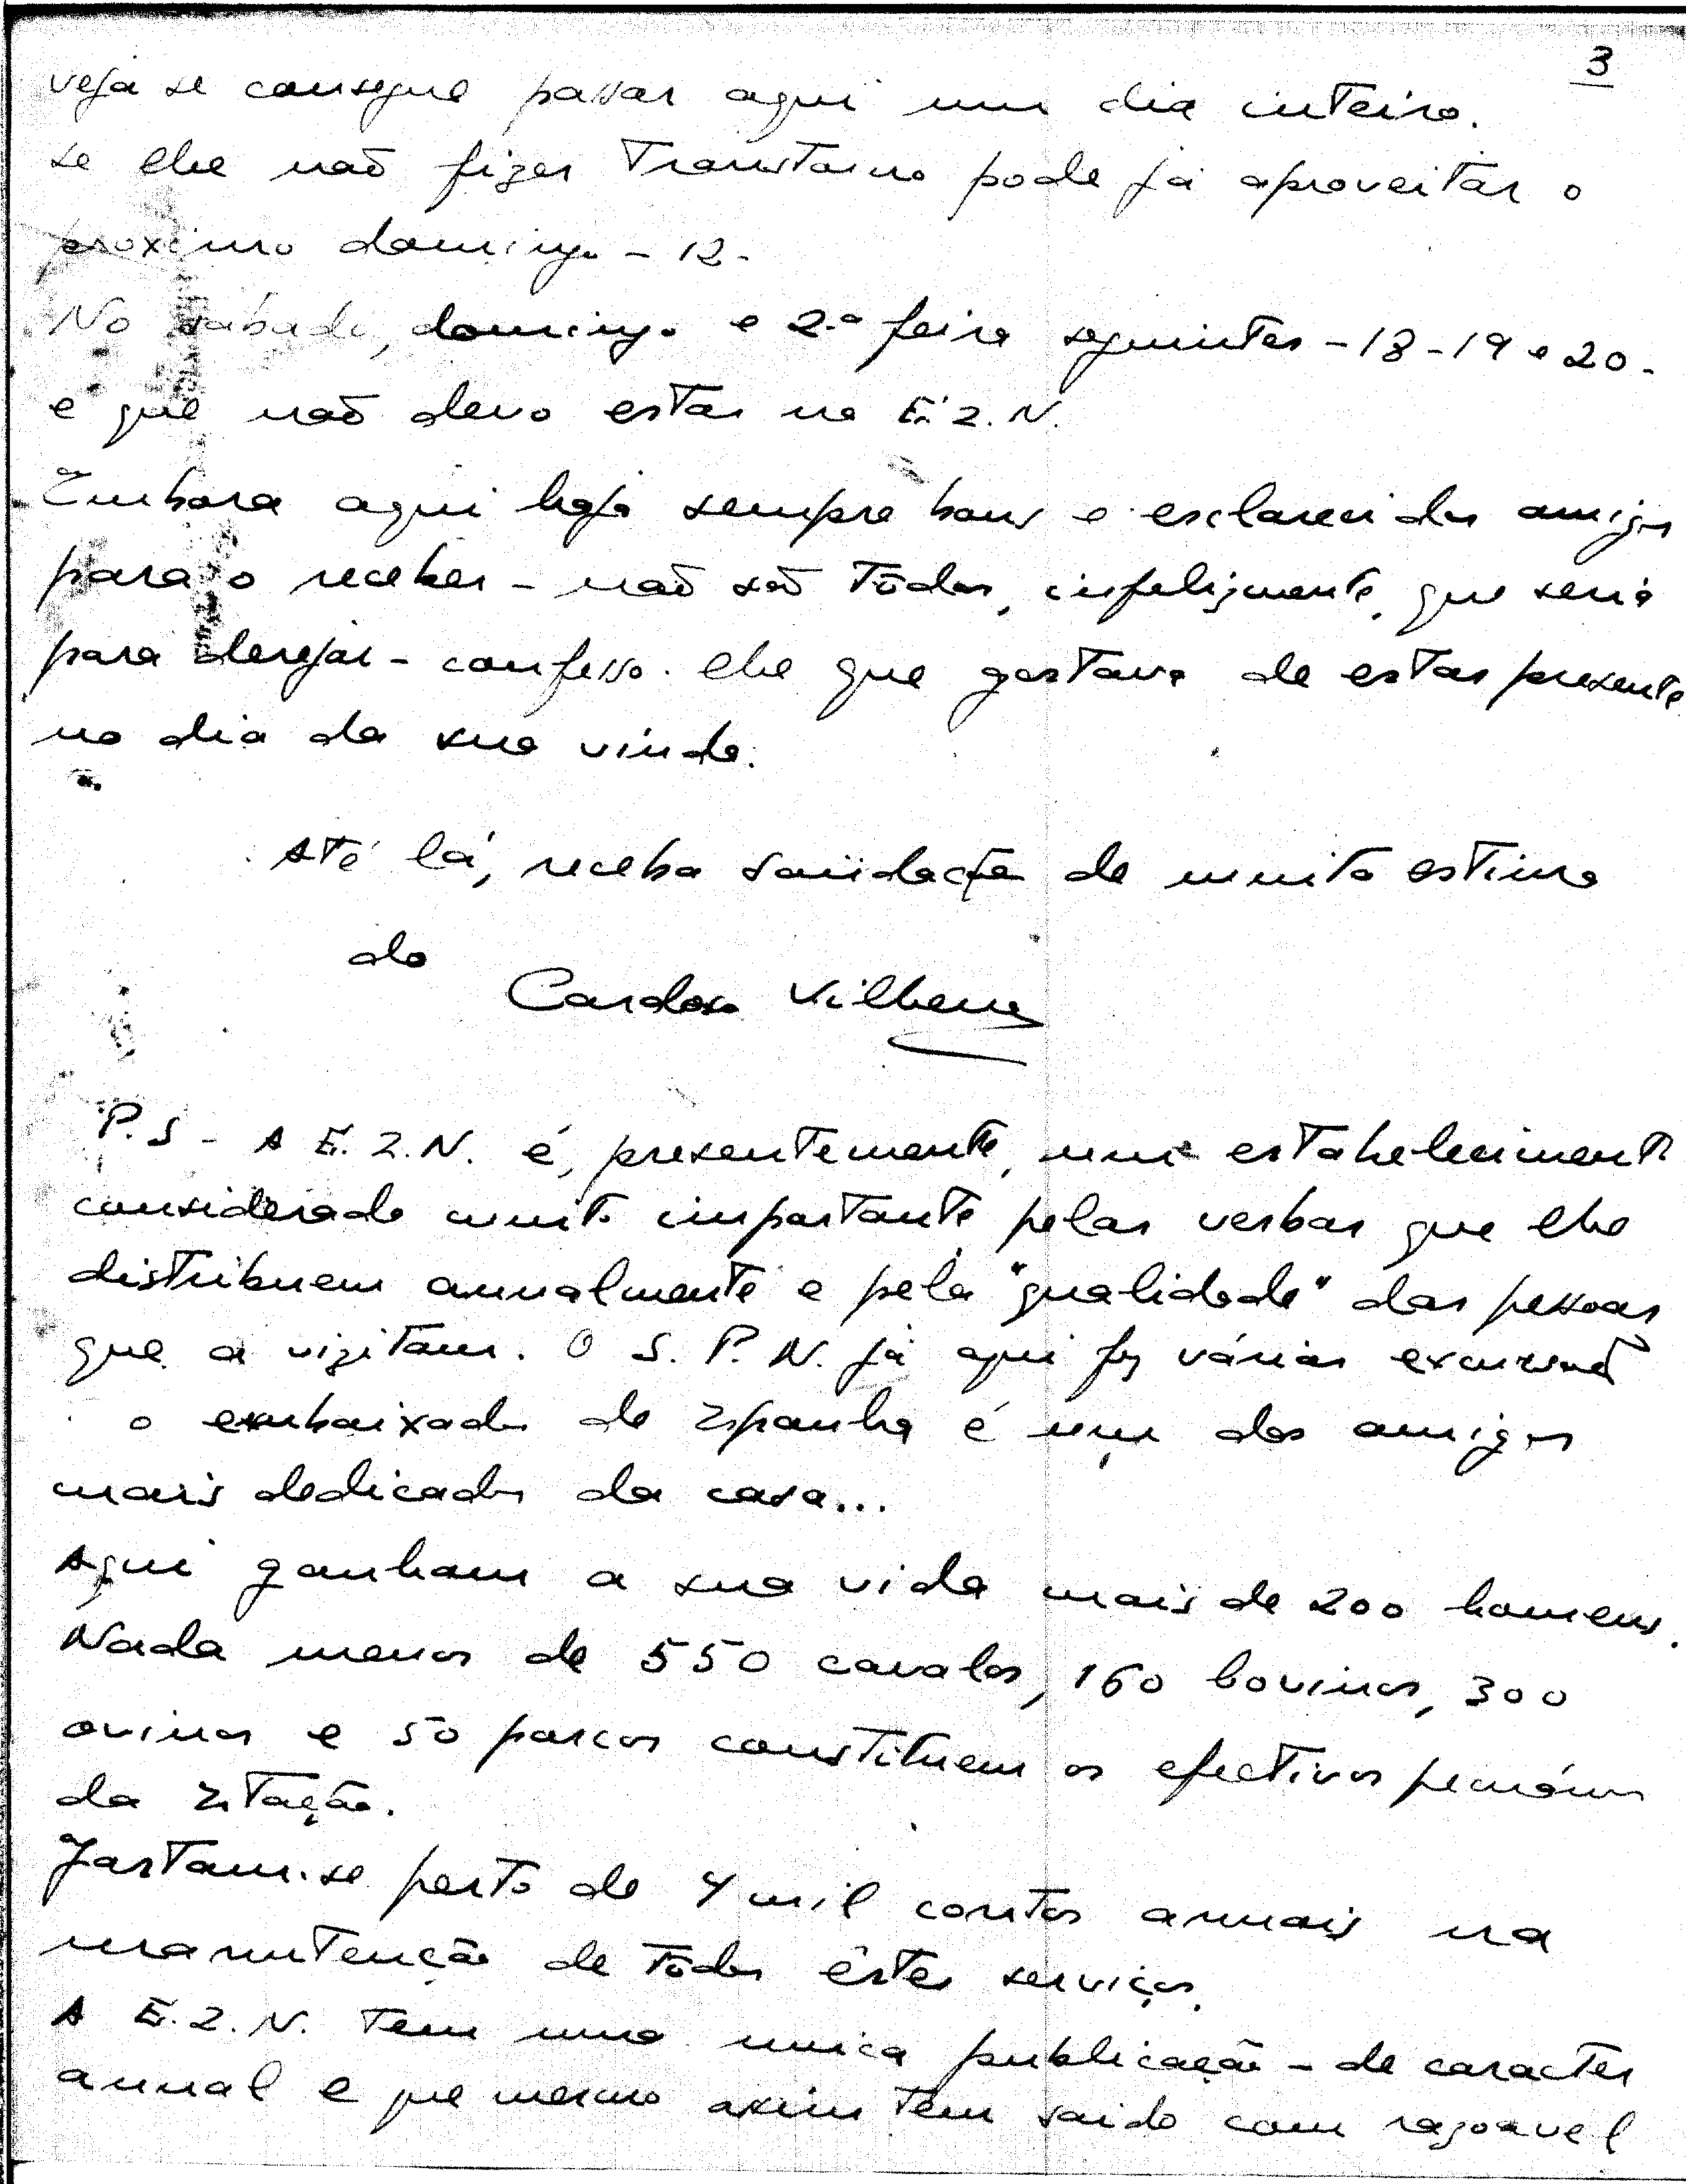 3
veja se consegue passar aqui um dia inteiro.
se lhe não fizer transtorno pode já aproveitar o
proximo domingo - 12 -
No sabado, domingo e 2.ª feira seguintes - 18 - 19 e 20 -
é que não devo estar na E. Z. N.
Embora aqui haja sempre bons e esclarecidos amigos
para o receber - não são tôdos, infelizmente, que seria
para desejar - confesso-lhe que gostava de estar presente
no dia da sua vinda.
Até lá, receba saüdações de muita estima
do
Cardoso Vilhena
P. S - A E. Z. N. é, presentemente, um estabelecimento
considerado muito importante pelas verbas que lhe
distribuem anualmente e pela "qualidade" das pessoas
que a vizitam. O S. P. N. já aqui fez várias excursões
o embaixador de Espanha é um dos amigos
mais dedicados da casa...
Aqui ganham a sua vida mais de 200 homens.
Nada menos de 550 cavalos, 160 bovinos, 300
ovinos e 50 porcos constituem os efectivos pecuários
da Estação.
Gastam-se perto de 4 mil contos anuais na
manutenção de tôdos êstes serviços.
A E. Z. N. tem uma unica publicação - de caracter
anual e que mesmo assim tem saido com razoavel